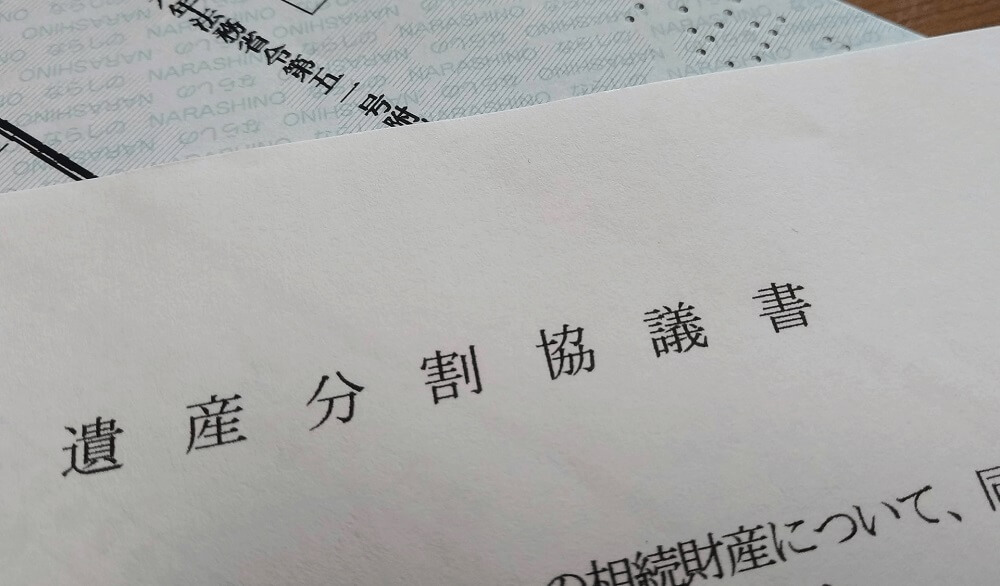 年法務省令第五一号附
NARASHINO ならしの NARASHINO ならしの
遺産分割協議書
の相続財産について、同